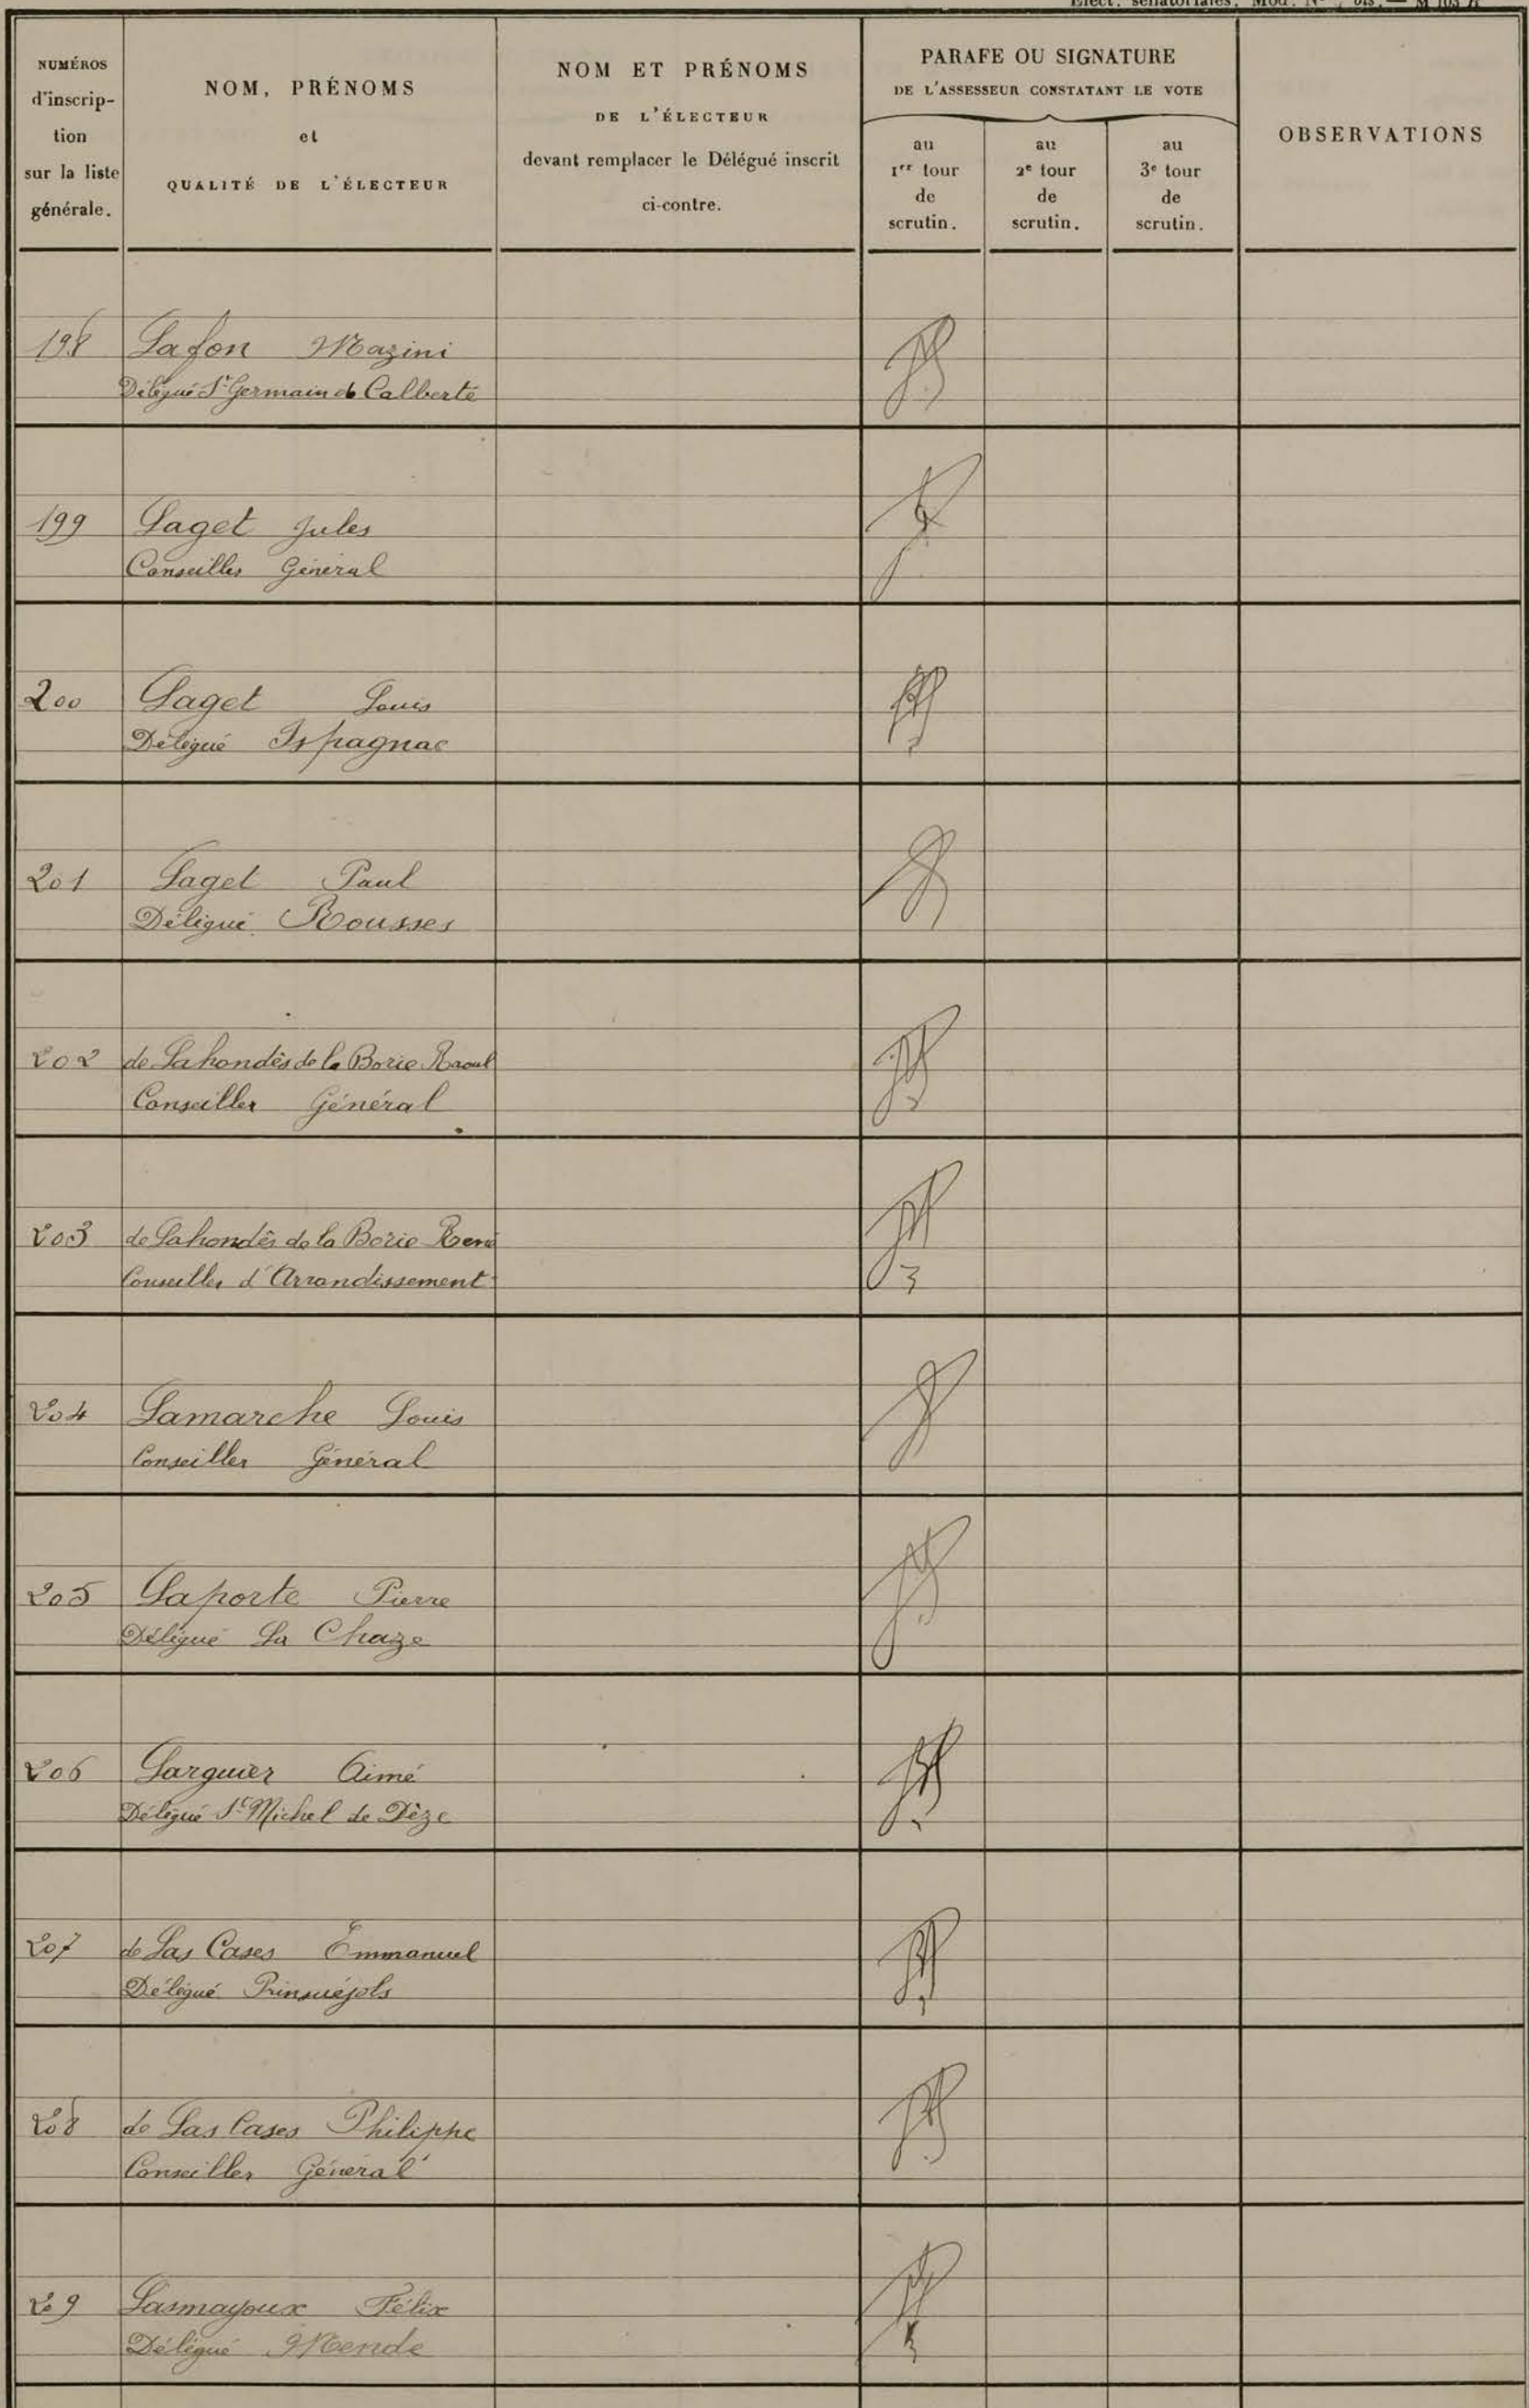 Élect. sénatoriales. Mod. N° bis. — M 105 R
NUMÉROS
d'inscrip-
tion
sur la liste
générale.
NOM, PRÉNOMS
et
QUALITÉ DE L'ÉLECTEUR
NOM ET PRÉNOMS
DE L'ÉLECTEUR
devant remplacer le Délégué inscrit
ci-contre.
PARAFE OU SIGNATURE
DE L'ASSESSEUR CONSTATANT LE VOTE
au
1er tour
de
scrutin.
au
2e tour
de
scrutin.
au
3e tour
de
scrutin.
OBSERVATIONS
198 Lafon Mazini
Délégué St Germain de Calberte
199 Laget Jules
Conseiller Général
200 Laget Louis
Délégué Ispagnac
201 Laget Paul
Délégué Rousses
202 de Lahondès de la Borie Raoul
Conseiller Général
203 de Lahondès de la Borie René
Conseiller d'Arrondissement
204 Lamarche Louis
Conseiller Général
205 Laporte Pierre
Délégué La Chaze
206 Larguier Aimé
Délégué St Michel de Dèze
207 de Las Cases Emmanuel
Délégué Prinsuéjols
208 de Las Cases Philippe
Conseiller Général
209 Lasmayoux Félix
Délégué Mende